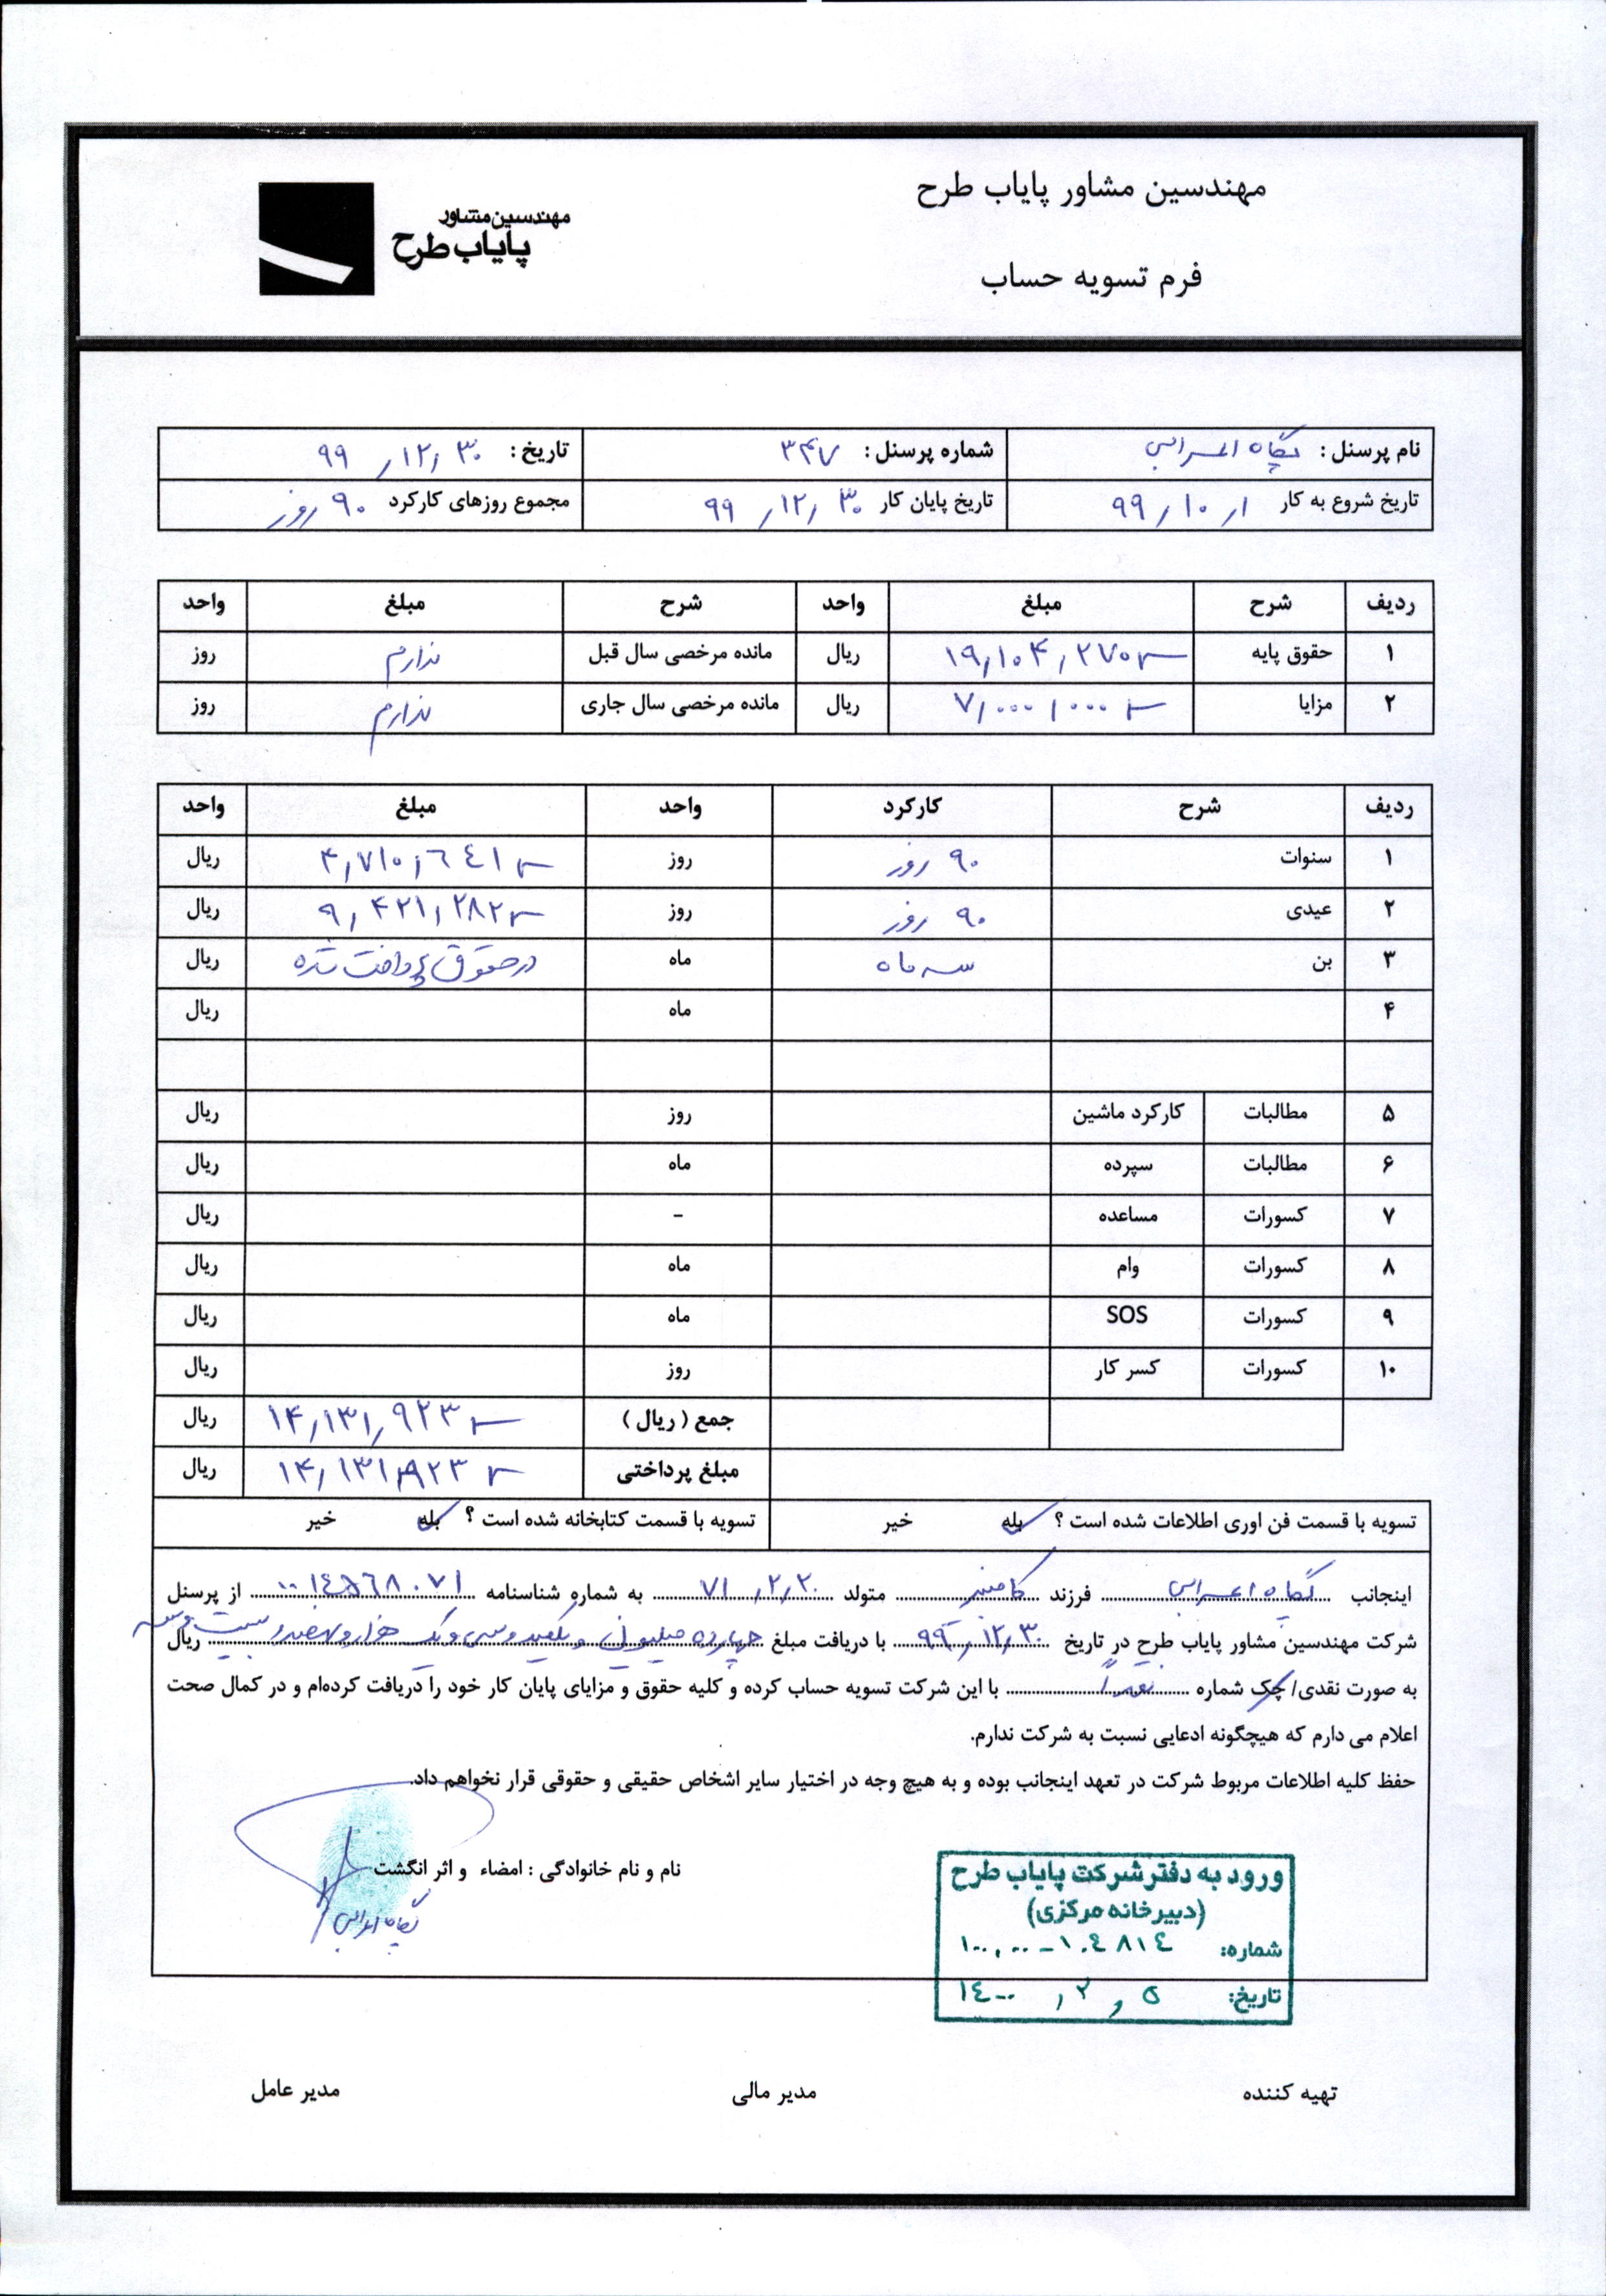 مهندسین مشاور پایاب طرح
مهندسین مشاور
پایاب طرح
فرم تسویه حساب
نام پرسنل : پگاه شماره پرسنل : ۳۴۷ تاریخ : ۹۹/۱۲/۳۰
تاریخ شروع به کار ۹۹/۱۰/۱ تاریخ پایان کار ۹۹/۱۲/۳۰ مجموع روزهای کارکرد ۹۰ روز
ردیف شرح مبلغ واحد شرح مبلغ واحد
۱ حقوق پایه ۱۹,۱۰۴,۲۷۰ ریال مانده مرخصی سال قبل ندارم روز
۲ مزایا ۷,۰۰۰,۰۰۰ ریال مانده مرخصی سال جاری ندارم روز
ردیف شرح کارکرد واحد مبلغ واحد
۱ سنوات ۹۰ روز روز ۴,۷۱۰,۶۴۱ ریال
۲ عیدی ۹۰ روز روز ۹,۴۲۱,۲۸۲ ریال
۳ بن سه ماه ماه در حقوق پرداخت شده ریال
۴ ماه ریال
۵ مطالبات کارکرد ماشین روز ریال
۶ مطالبات سپرده ماه ریال
۷ کسورات مساعده - ریال
۸ کسورات وام ماه ریال
۹ کسورات SOS ماه ریال
۱۰ کسورات کسر کار روز ریال
جمع ( ریال ) ۱۴,۱۳۱,۹۲۳ ریال
مبلغ پرداختی ۱۴,۱۳۱,۹۲۳ ریال
تسویه با قسمت فن اوری اطلاعات شده است ؟ بله خیر تسویه با قسمت کتابخانه شده است ؟ بله خیر
اینجانب پگاه فرزند متولد ۷۱/۲/۲۰ به شماره شناسنامه ۰۰۱۴۵۶۸۰۷۱ از پرسنل
شرکت مهندسین مشاور پایاب طرح در تاریخ ۹۹/۱۲/۳۰ با دریافت مبلغ چهارده میلیون و یکصد و سی و یک هزار و نهصد و بیست و سه ریال
به صورت نقدی/ چک شماره نقداً با این شرکت تسویه حساب کرده و کلیه حقوق و مزایای پایان کار خود را دریافت کرده‌ام و در کمال صحت
اعلام می دارم که هیچگونه ادعایی نسبت به شرکت ندارم.
حفظ کلیه اطلاعات مربوط شرکت در تعهد اینجانب بوده و به هیچ وجه در اختیار سایر اشخاص حقیقی و حقوقی قرار نخواهم داد.
نام و نام خانوادگی : امضاء و اثر انگشت
پگاه
ورود به دفتر شرکت پایاب طرح
(دبیرخانه مرکزی)
شماره: ۱۰۰,۰۰-۱۰۴۸۱۴
تاریخ: ۱۴۰۰/۲/۵
تهیه کننده مدیر مالی مدیر عامل